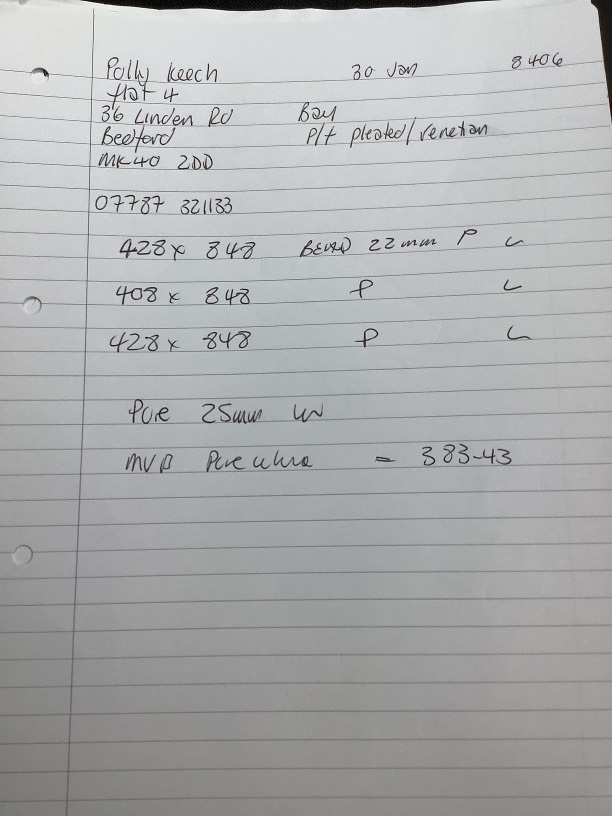 Polly Keech 30 Jan 8406
flat 4
36 Linden Rd Bay
Bedford P/f pleated/venetian
MK40 2DD
07787 321133
428 x 848 BEAD 22mm P L
408 x 848 P L
428 x 848 P L
Pure 25mm W
MVB Pure white = 383-43